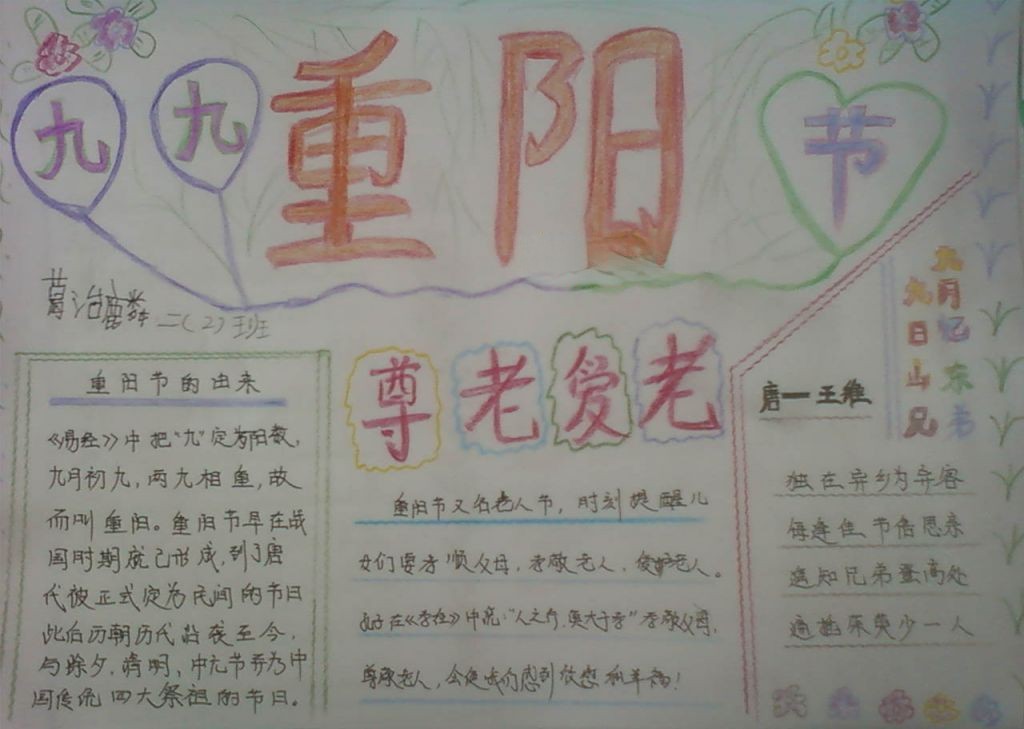 九九重阳节
二(2)班
重阳节的由来
《易经》中把“九”定为阳数,
九月初九,两九相重,故
而叫重阳。重阳节早在战
国时期就已形成,到了唐
代被正式定为民间的节日
此后历朝历代沿袭至今,
与除夕,清明、中元节并为中
国传统四大祭祖的节日。
尊老爱老
重阳节又名老人节,时刻提醒儿
女们要孝顺父母,孝敬老人,爱护老人。
《孝经》中说:“人之行,莫大于孝”孝敬父母,
尊敬老人,会使我们感到欣慰和幸福!
九月
九日忆
山东
兄弟
唐一王维
独在异乡为异客
每逢佳节倍思亲
遥知兄弟登高处
遍插茱萸少一人